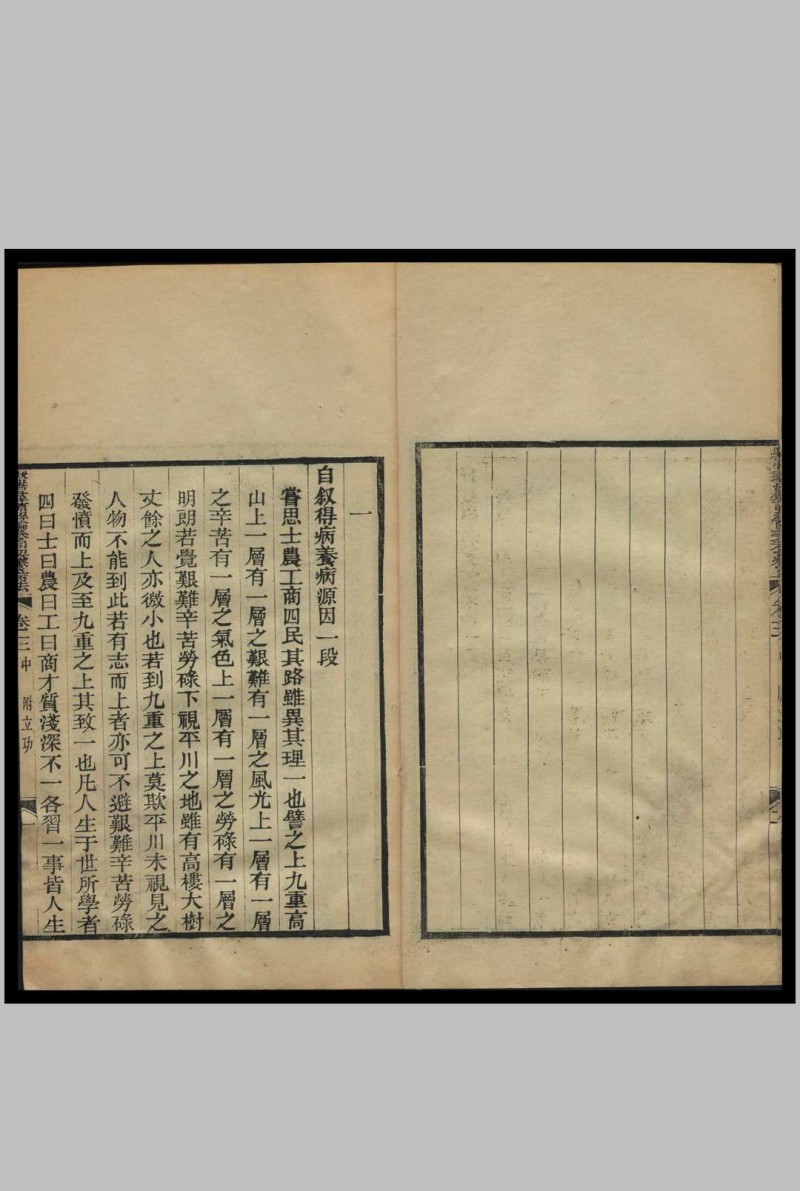 一
自叙得病養病源因一段
嘗思士農工商四民其路雖異其理一也譬之上九重高
山上一層有一層之艱難有一層之風光上一層有一層
之辛苦有一層之氣色上一層有一層之勞碌有一層之
明朗若覺艱難辛苦勞碌下視平川之地雖有高樓大樹
丈餘之人亦微小也若到九重之上莫欺平川未視見之
人物不能到此若有志而上者亦可不避艱難辛苦勞碌
發憤而上及至九重之上其致一也凡人生于世所學者
四曰士曰農曰工曰商才質淺深不一各習一事皆人生
卷三中 附立功 一